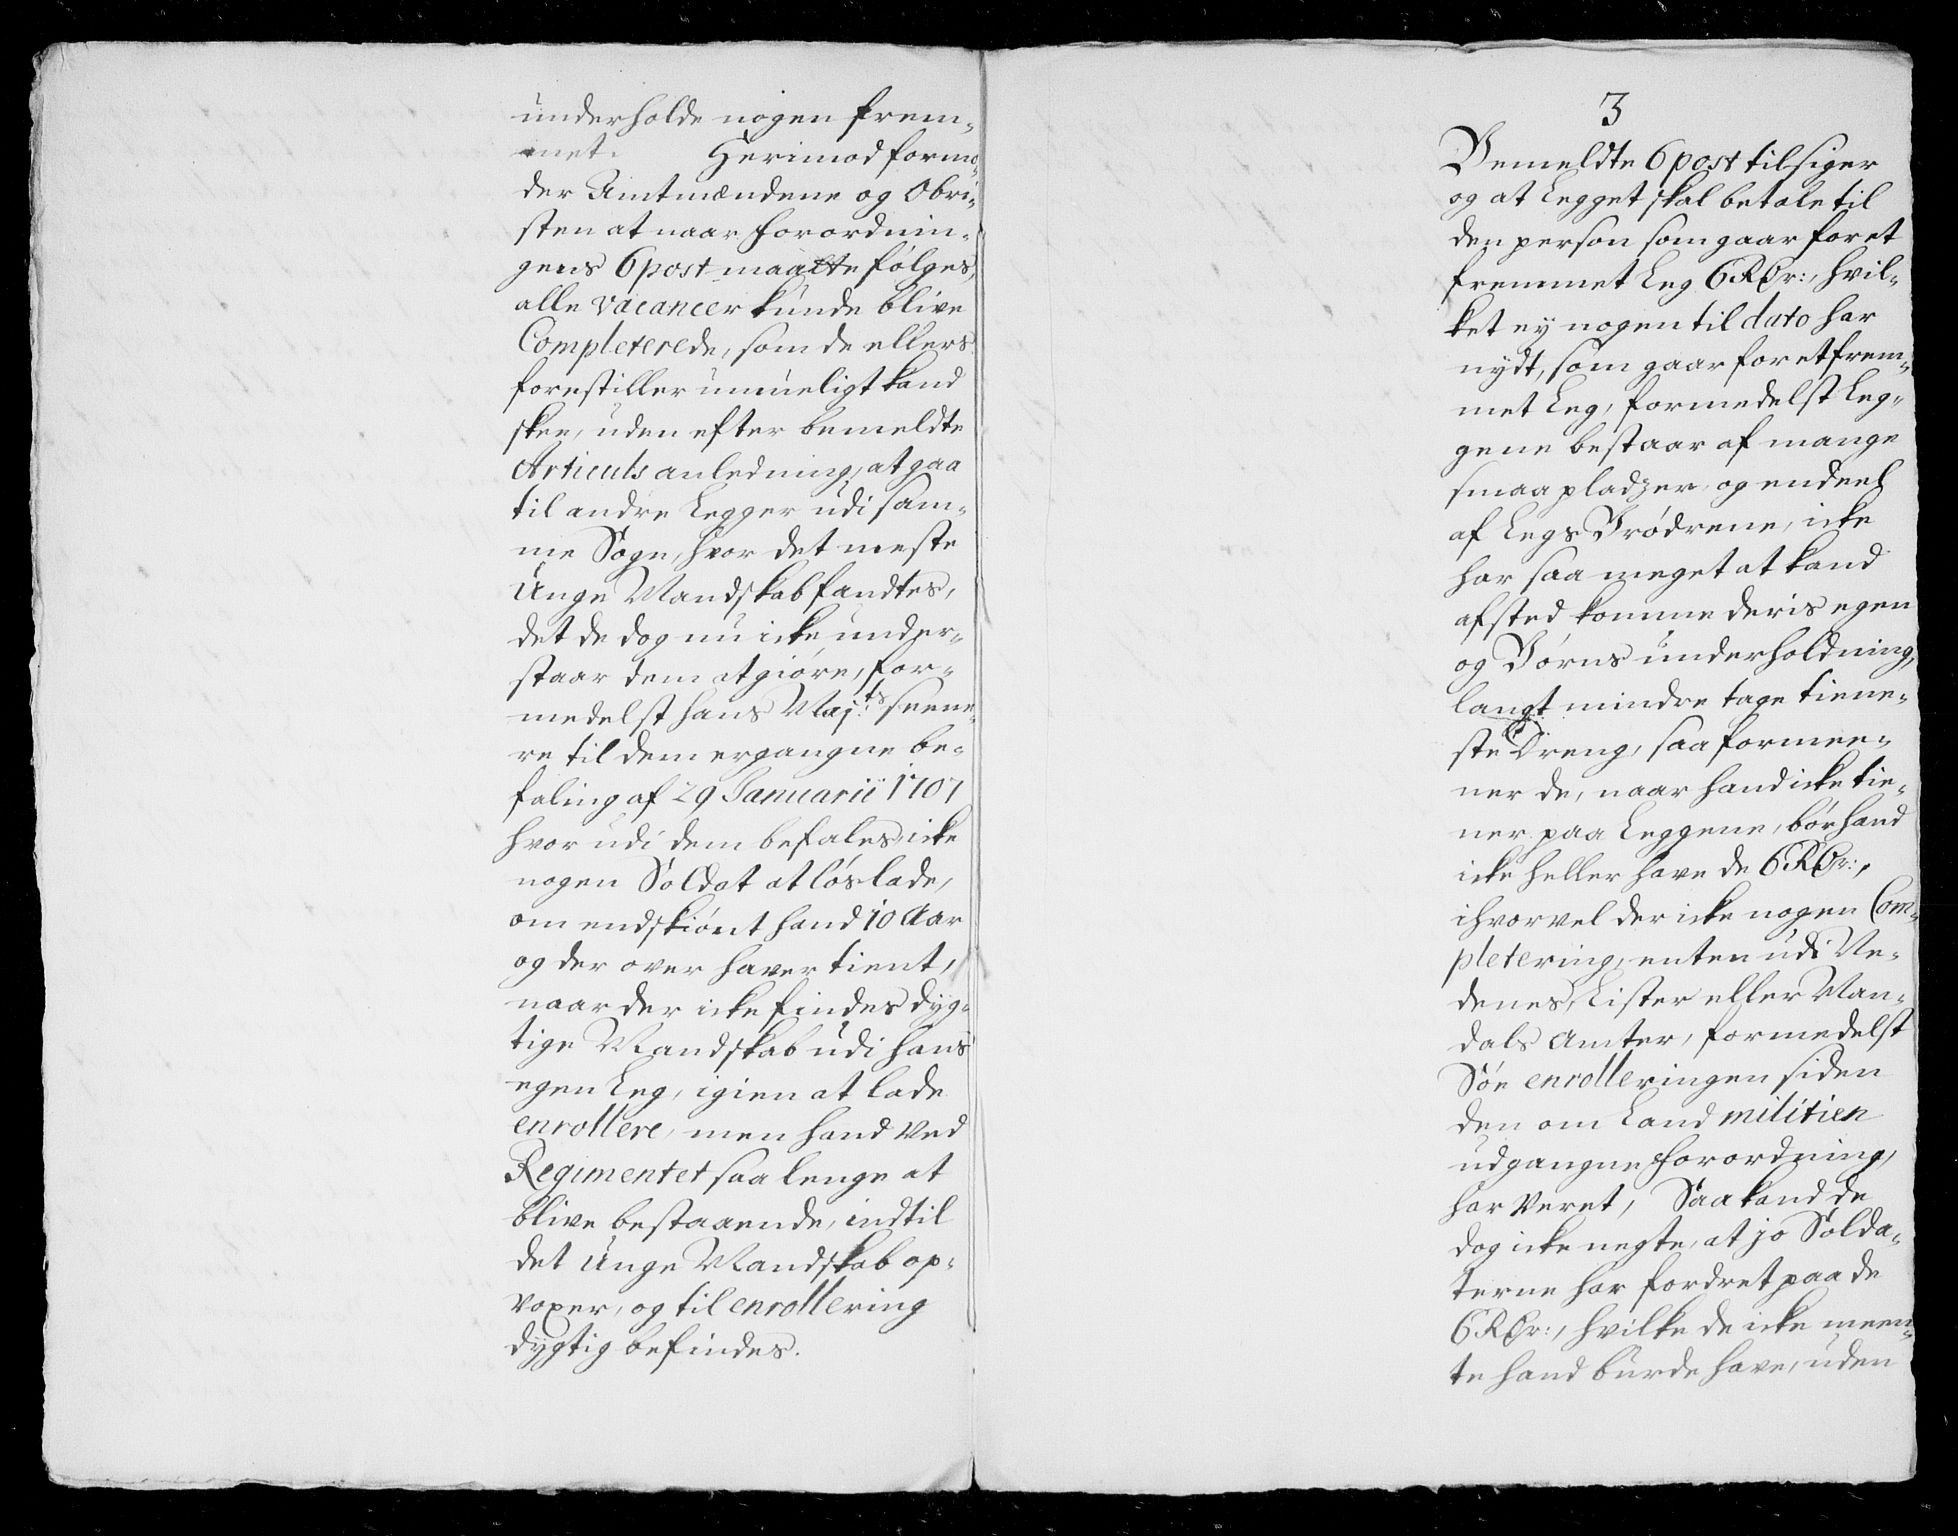 underholde nogen frem-
met. Herimod formo-
der Amtmændene og Obri-
sten at naar forordnin-
gens 6 post maatte følges,
alle vacancer kunde blive
Completerede, som de ellers
forestiller umueligt kand
skee, uden efter bemeldte
Articuls anledning, at gaa
til andre Legger udi sam-
me Sogn, hvor det meste
Unge Mandskab fandtes,
det de dog nu icke under-
staar dem at giøre, for-
medelst hans Maj:ts seene-
re til dem ergangne be-
faling af 29 Januarii 1707
hvor udi dem befales, icke
nogen Soldat at løslade,
om endskiønt hand 10 Aar
og der over haver tient,
naar der icke findes dyg-
tige Mandskab udi hans
egen Leg, igien at lade
enrollere, men hand ved
Regimentet saa lenge at
blive bestaaende, indtil
det Unge Mandskab op-
voxer, og til enrollering
dygtig befindes.
3
Bemeldte 6 post tilsiger
og at Legget skal betale til
den person som gaar for et
fremmet Leg 6 RDr:, hvil-
ket ey nogen til dato har
nydt, som gaar for et frem-
met Leg, formedelst Leg-
gene bestaar af mange
smaa pladzer, og endeel
af Legs Brødrene, icke
har saa meget at kand
afsted komme deris egen
og Børns underholdning,
langt mindre tage tiene-
ste Dreng, saa formee-
ner de, naar hand icke tie-
ner paa Leggene, bør hand
icke heller have de 6 RDr:,
ihvorvel der icke nogen Com-
pletering, enten udi Ne-
denes, Lister eller Man-
dals Amter, formedelst
Søe enrolleringen siden
den om Land militien
udgangne forordning,
har veret, Saa kand de
dog icke negte, at jo Solda-
terne har fordret paa de
6 RDr:, hvilke de icke meen-
te hand burde have, uden